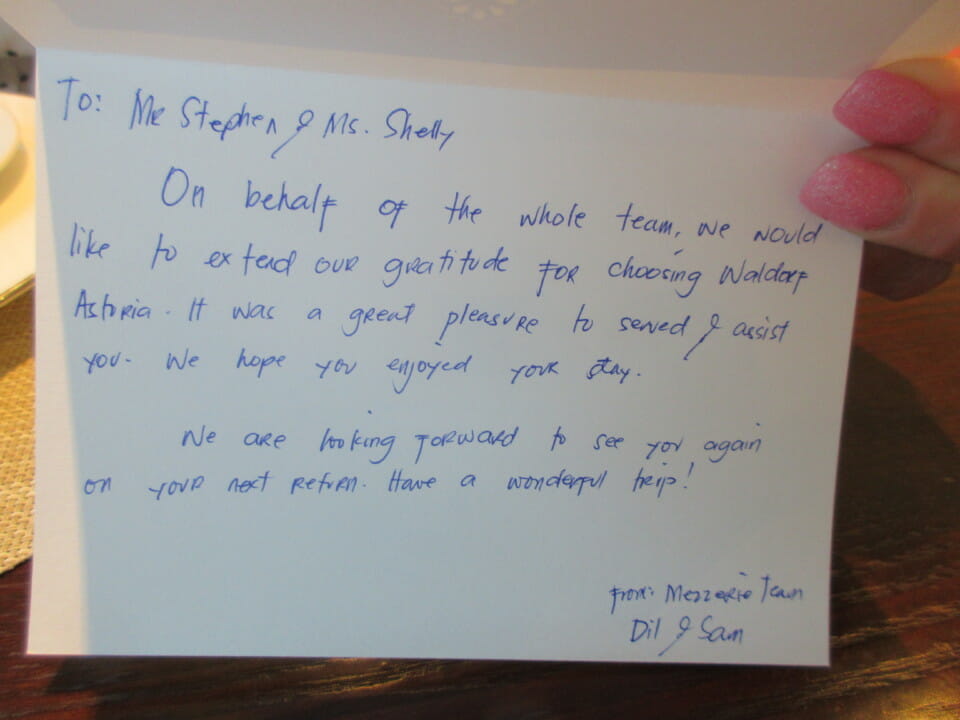 To: Mr Stephen & Ms. Shelly
On behalf of the whole team, we would
like to extend our gratitude for choosing Waldorf
Astoria. It was a great pleasure to served & assist
you. We hope you enjoyed your stay.
We are looking forward to see you again
on your next return. Have a wonderful trip!
From: Mezzerie Team
Dil & Sam